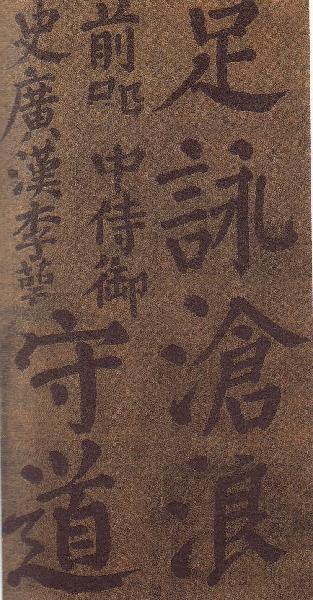 足詠滄浪
前中侍御
史廣漢李萼守道